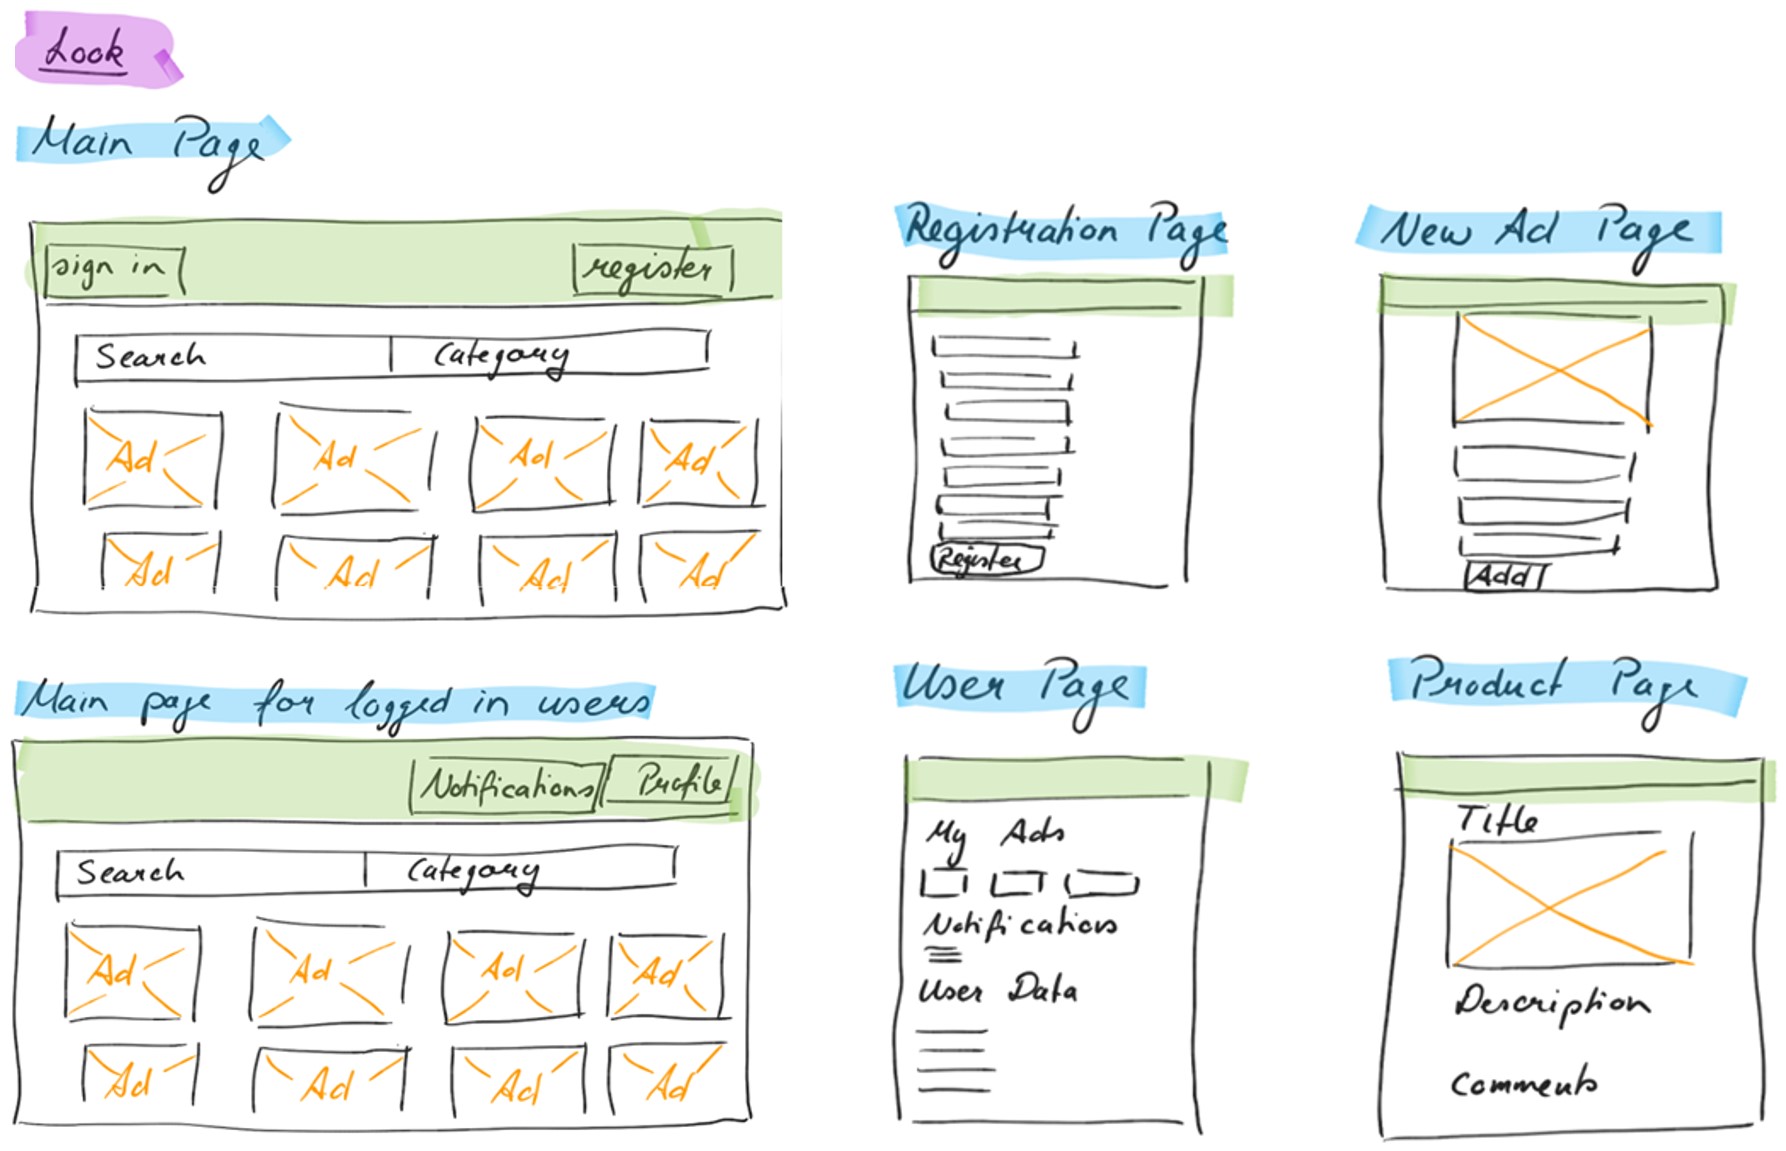 Look
Main Page
sign in register
Search Category
Ad Ad Ad Ad
Ad Ad Ad Ad
Registration Page
Register
New Ad Page
Add
Main page for logged in users
Notifications Profile
Search Category
Ad Ad Ad Ad
Ad Ad Ad Ad
User Page
My Ads
Notifications
User Data
Product Page
Title
Description
Comments